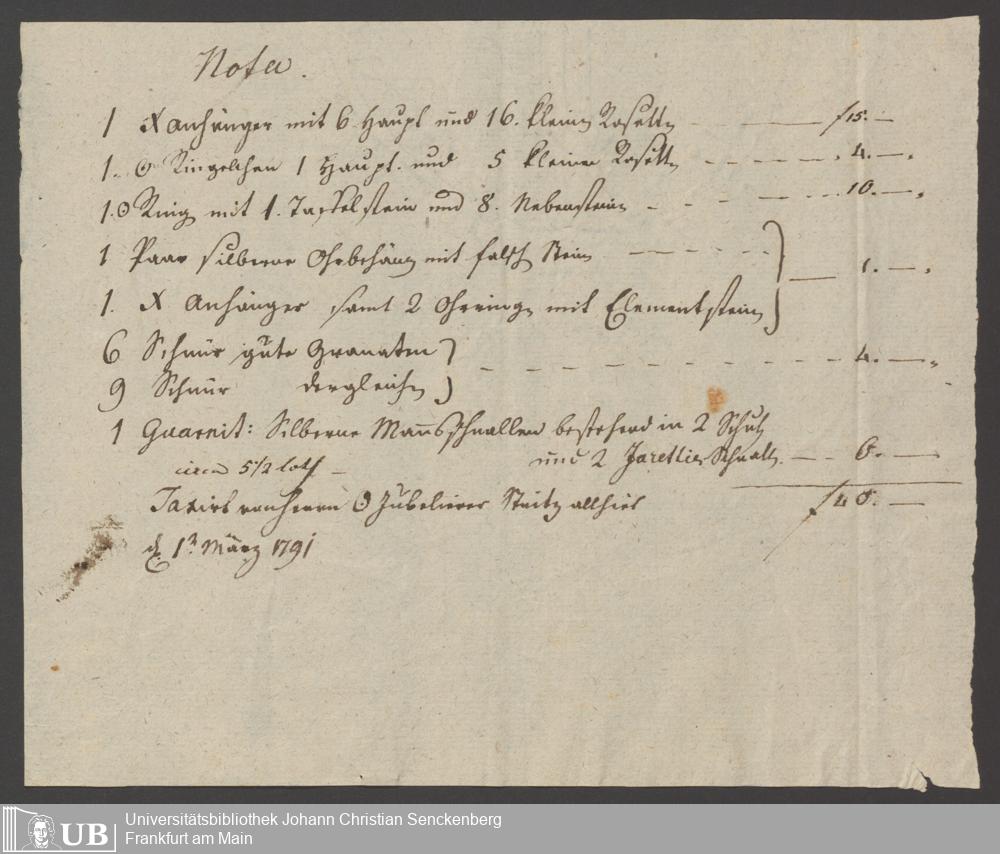 Nota.
1 X Anhänger mit 6 Haupt und 16. kleine Rosetten — — f 15. —
1. ☉ Ringelchen 1 Haupt. und 5 kleine Rosetten - - - - - „ 4. — „
1. ☉ Ring mit 1. Taffelstein und 8. Nebensteinen - - - - - 10. — „
1 Paar silberne Ohrbehäng mit falsch Stein — — - - - }
1. X Anhänger samt 2 Ohrring mit Element stein } — 1. — „
6 Schnür gute Granaten }
9 Schnür dergleichen } - - - - - - - - - 4. — „
1 Guarnit: Silberne Mannsschnallen bestehend in 2 Schuh
circa 5 1/2 loth — und 2 Jarettier Schnalln. — - 6. —
Taxirt von Herrn Jubelierer allhier f 40. —
d. 1t März 1791
UB
Universitätsbibliothek Johann Christian Senckenberg
Frankfurt am Main